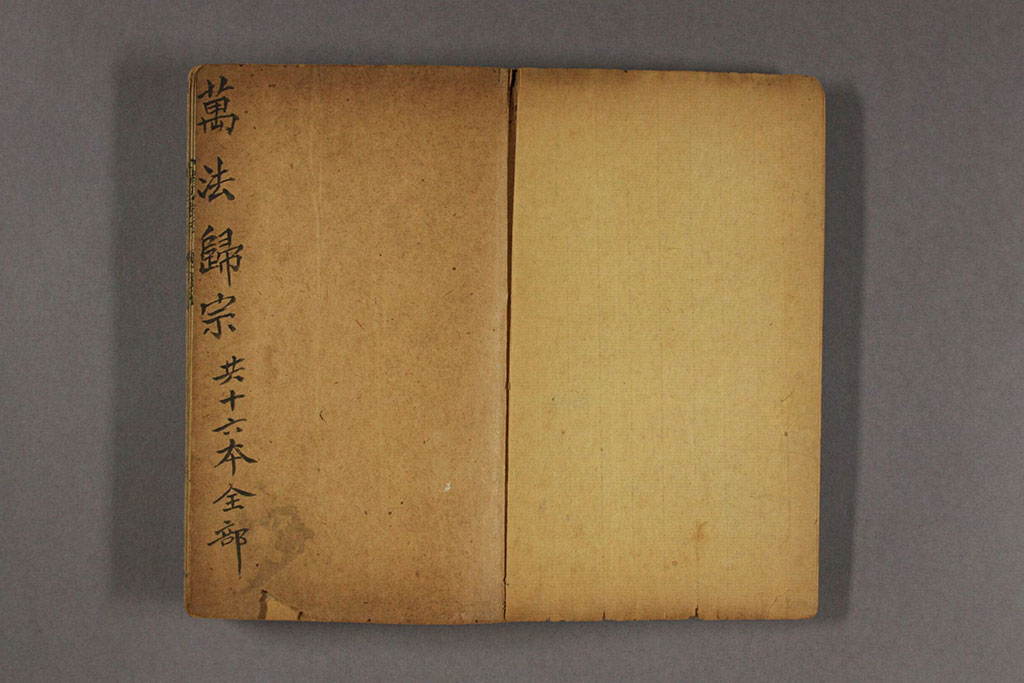 萬法歸宗 共十六本全部